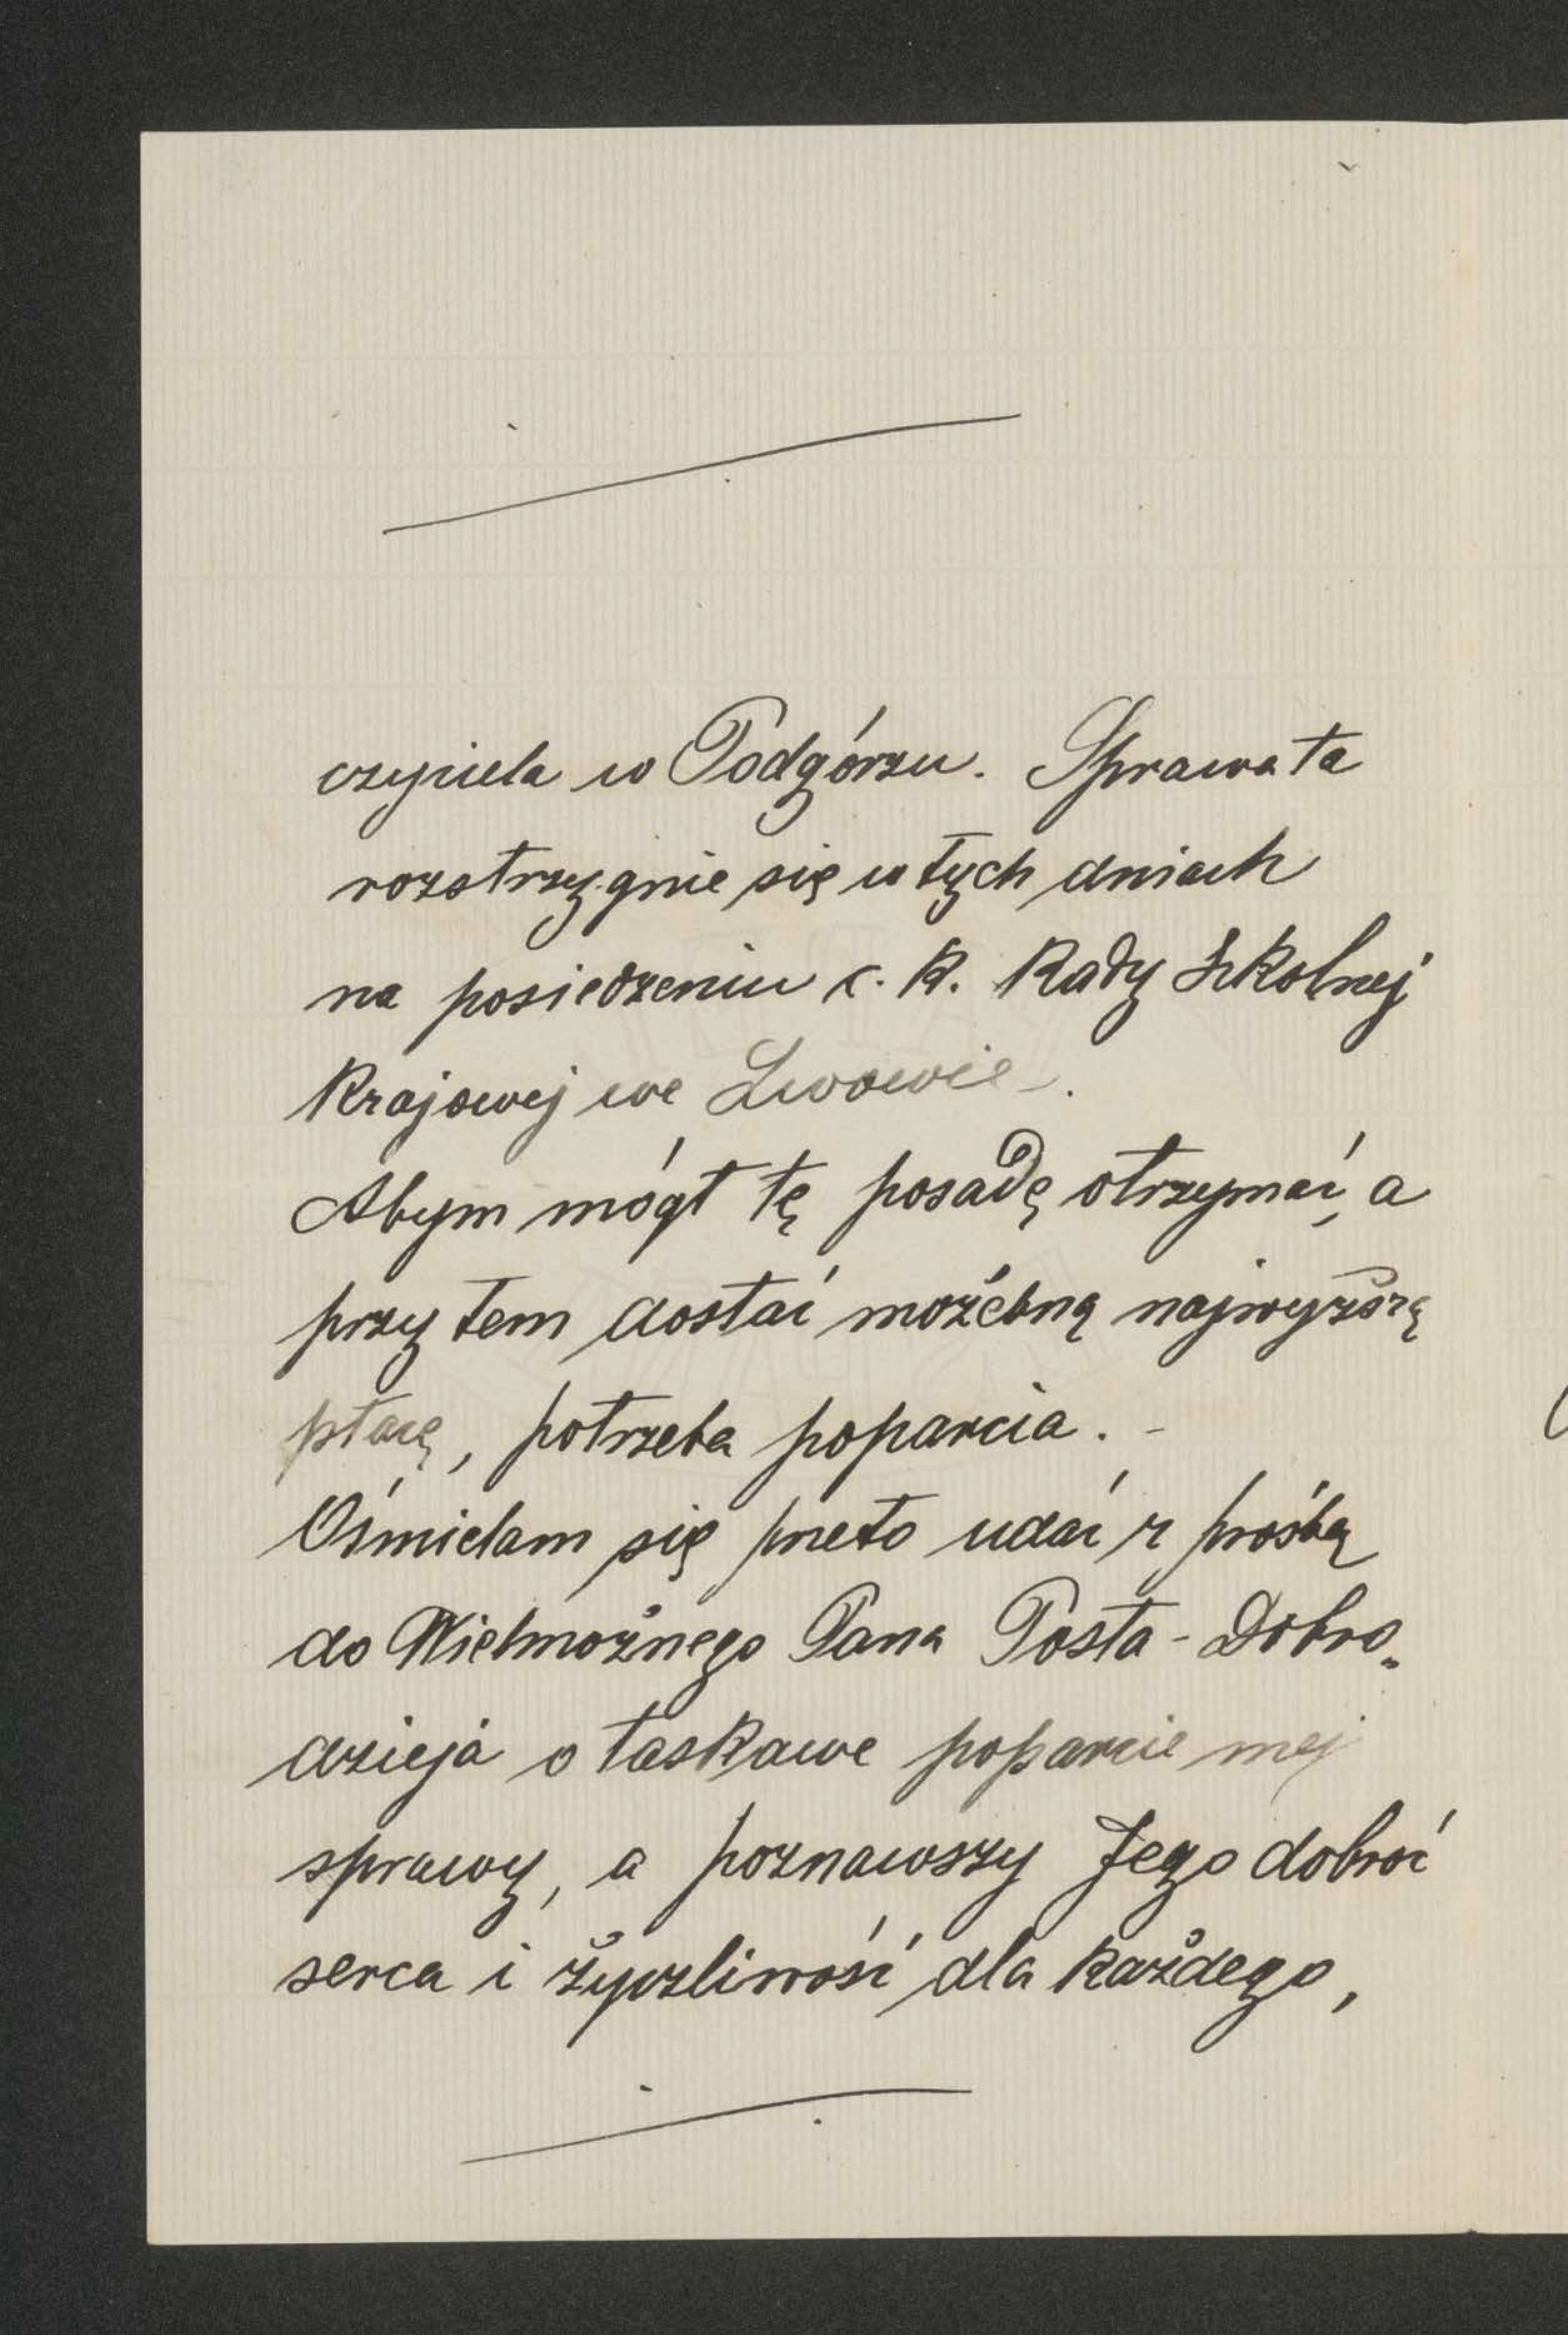 czyciela w Podgórzu. Sprawa ta
rozstrzygnie się w tych dniach
na posiedzeniu c. k. Rady Szkolnej
Krajowej we Lwowie.
Abym mógł tę posadę otrzymać, a
przy tem dostać możebną najwyższą
płacę, potrzeba poparcia. -
Ośmielam się przeto udać z prośbą
do Wielmożnego Pana Posła-Dobro-
dzieja o łaskawe poparcie mej
sprawy, a poznawszy Jego dobroć
serca i życzliwość dla każdego,